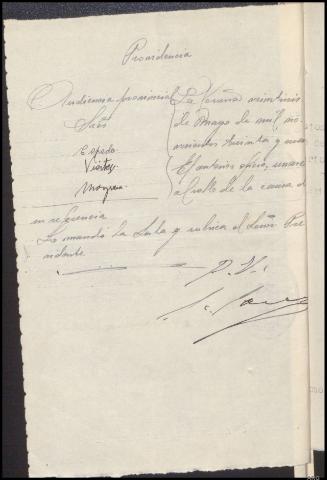 Providencia
Audiencia provincial
Sres
Espedo
Vieitez
La Coruña veintiseis
de Mayo de mil no-
vecientos treinta y uno
El anterior oficio, únase
al rollo de la causa de
referencia
Lo mandó la Sala y rubrica el Señor Pre-
sidente